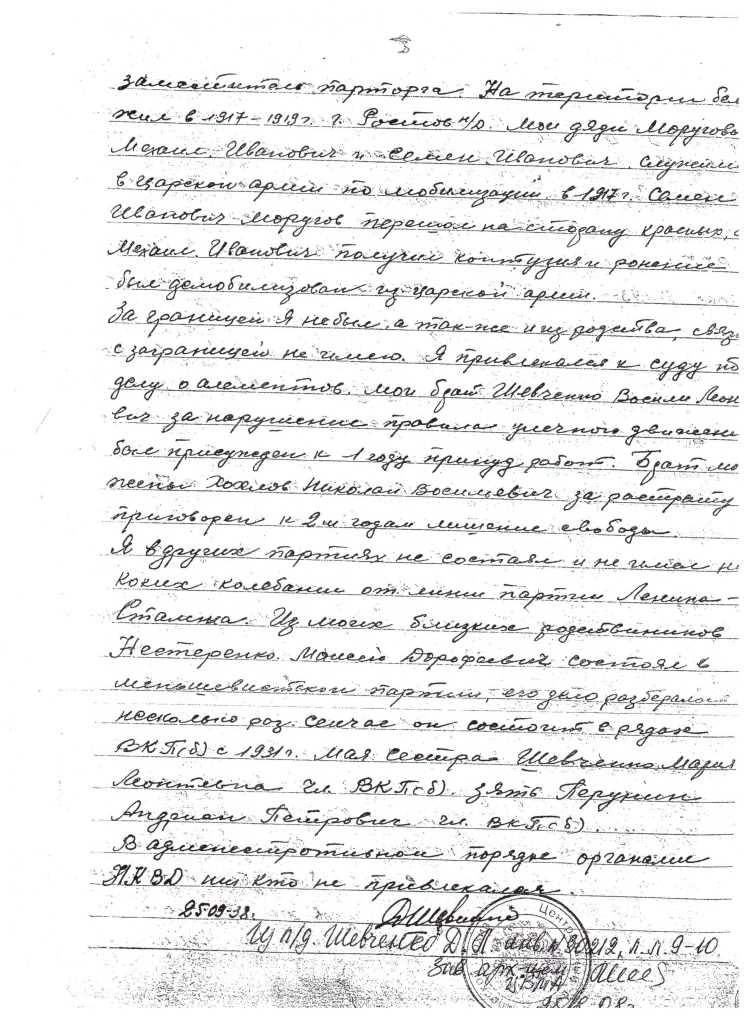 3
заместитель парторга. На територии бел
жил в 1917-1919г. г. Ростов н/Д. Мои дяди Моругов
Михаил Иванович и Семен Иванович служили
в царской армии по мобилизации в 1917г. Семен
Иванович Моругов перешол на сторану красных, а
Михаил Иванович получил контузия и ронение
был демобилизован из царской армии.
За границей я небыл а так-же и из родства, связ
с заграницей не имею. Я привлекался к суду по
делу о алементов. мои брат Шевченко Васили Леон
вич за нарушение правила улечного движени
был присужден к 1 году принуд работ. Брат мо
жены Хохлов Николай Василевич за растрату
приговорен к 2м годам лишение свободы.
Я в других партиях не состоял и не имел н
коких колебании от лини партии Ленина-
Сталина. Из моих близких родствиников
Нестеренко Моисей Дорофеевич состоял в
меньшевистской партии, его дело разберолось
несколько раз сейчас он состоит в рядах
ВКП(б) с 1931г. Мая сестра Шевченко Мария
Леонтевна чл. ВКП(б). зять Перунин
Андриан Петрович чл. ВКП(б)
В админестротивном порядке органами
НКВД ни кто не привлекался.
25-09-38г.
Из л/д. Шевченко Д.Л. инв. № 30212, л.л. 9-10.
Зав арх-щем
ЦВМА
Центральный